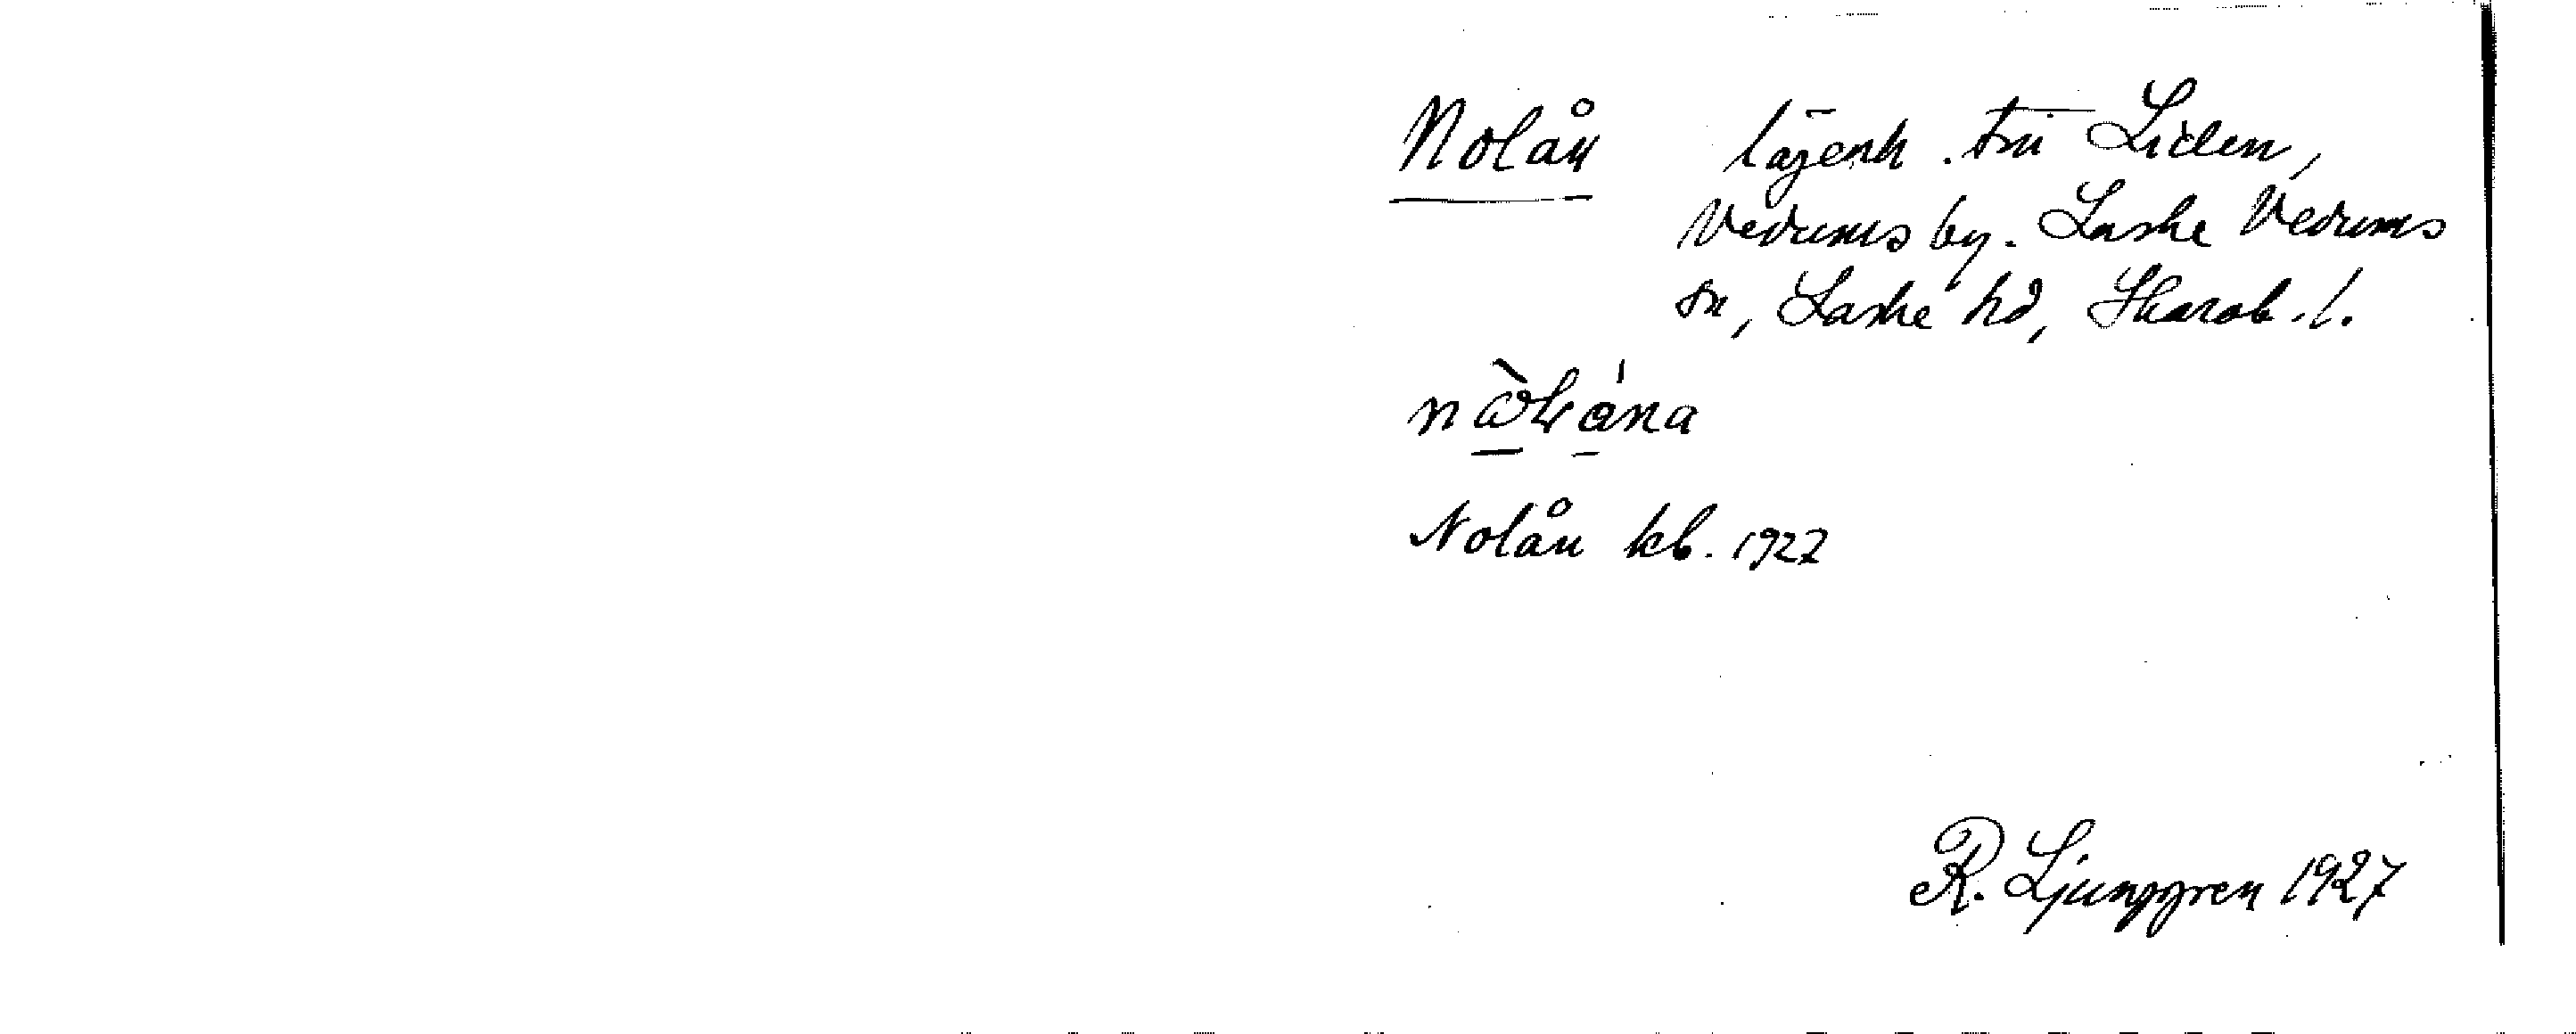 Nolån lägenh. frn Liden,
Vedums by. Laske Vedums
sn, Laske hd, Skarab. l.
Nolån kb. 1922
R. Ljunggren 1927